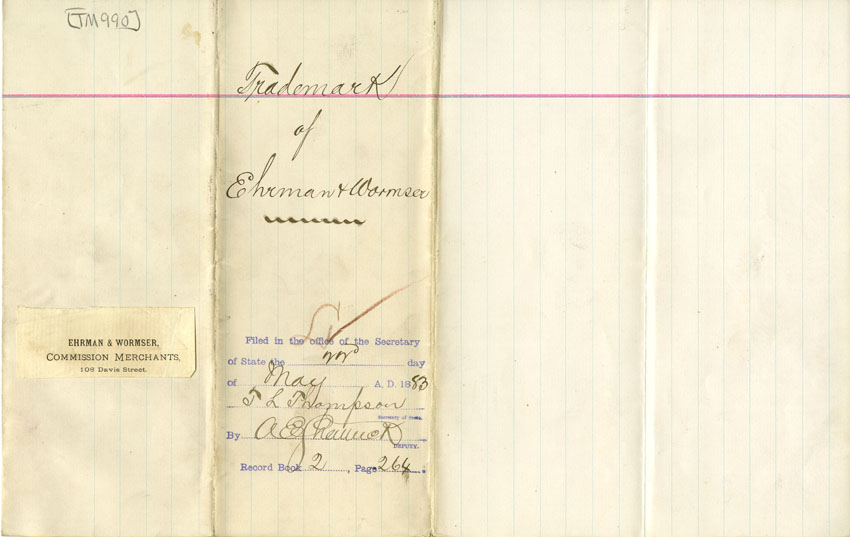 [TM990]
Trademark
of
Ehrman & Wormser
EHRMAN & WORMSER,
COMMISSION MERCHANTS,
108 Davis Street.
Filed in the office of the Secretary
of State the day
of May A. D. 1883
T L Thompson
Secretary of State.
By A E
DEPUTY.
Record Book 2, Page 264.